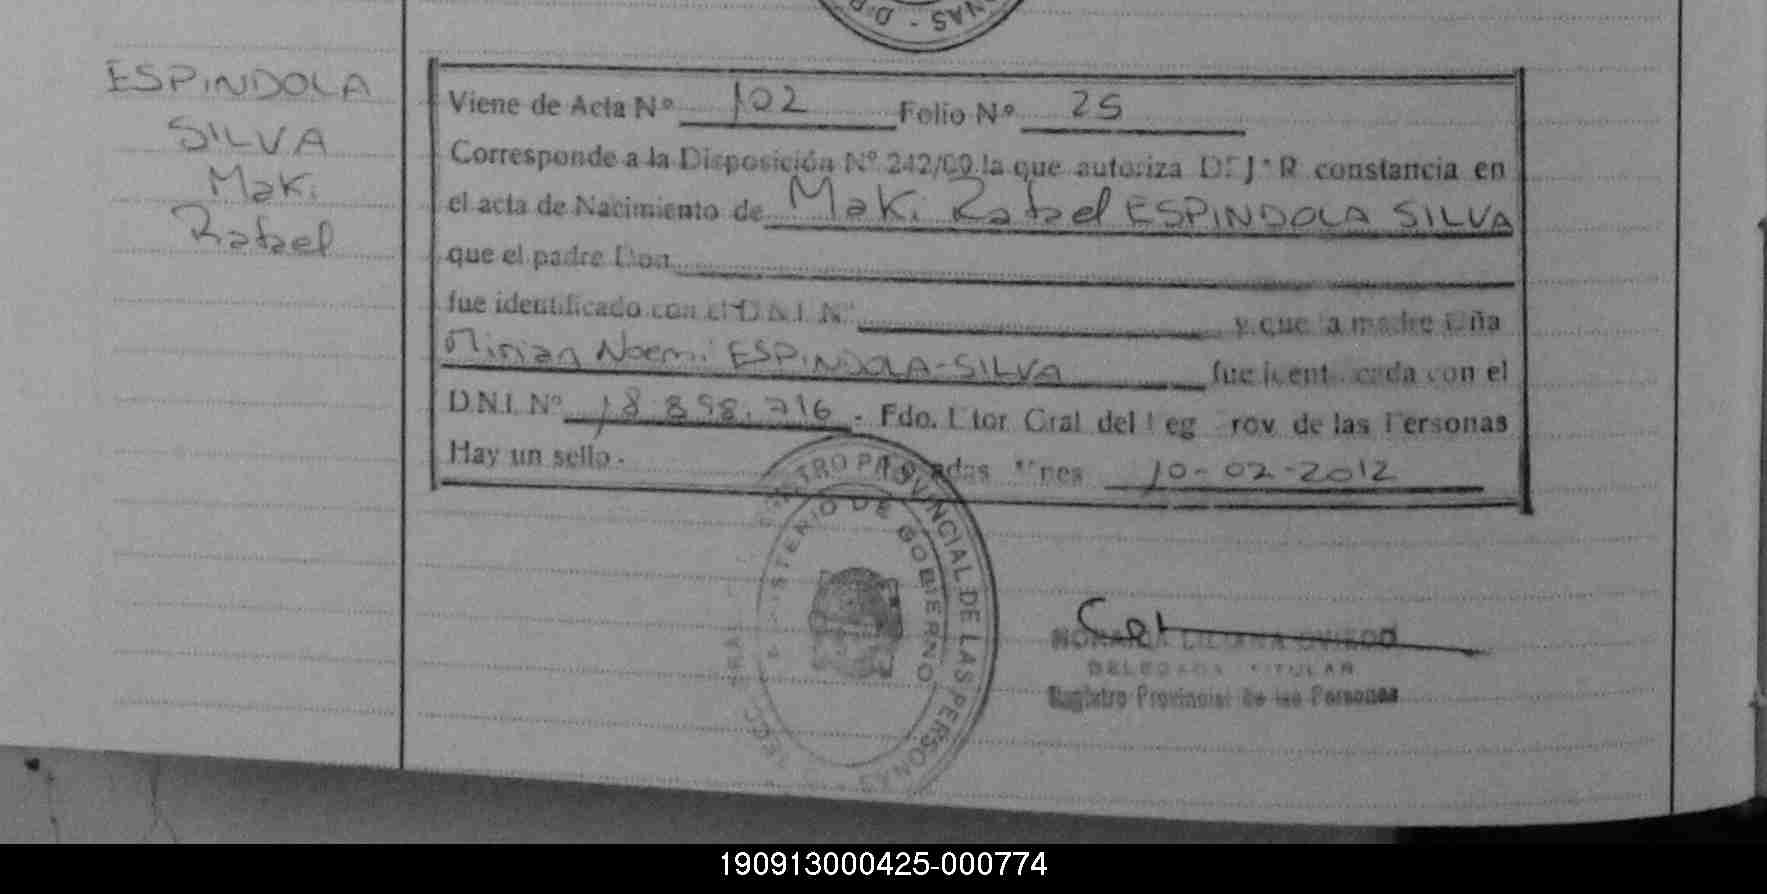 ESPINDOLA
SILVA
Maki
Rafael
Viene de Acta Nº 102 Folio Nº 25
Corresponde a la Disposición Nº 242/09 la que autoriza DEJAR constancia en
el acta de Nacimiento de Maki Rafael ESPINDOLA SILVA
que el padre Don
fue identificado con el D.N.I. Nº y que la madre Dña
Mirian Noemi ESPINDOLA-SILVA fue identificada con el
D.N.I. Nº 18.898.716 - Fdo. Dtor Gral del Reg Prov de las Personas
Hay un sello. 10-02-2012
REGISTRO PROVINCIAL DE LAS PERSONAS
MINISTERIO DE GOBIERNO
NORMA LILIANA OVIEDO
DELEGADA TITULAR
Registro Provincial de las Personas
190913000425-000774